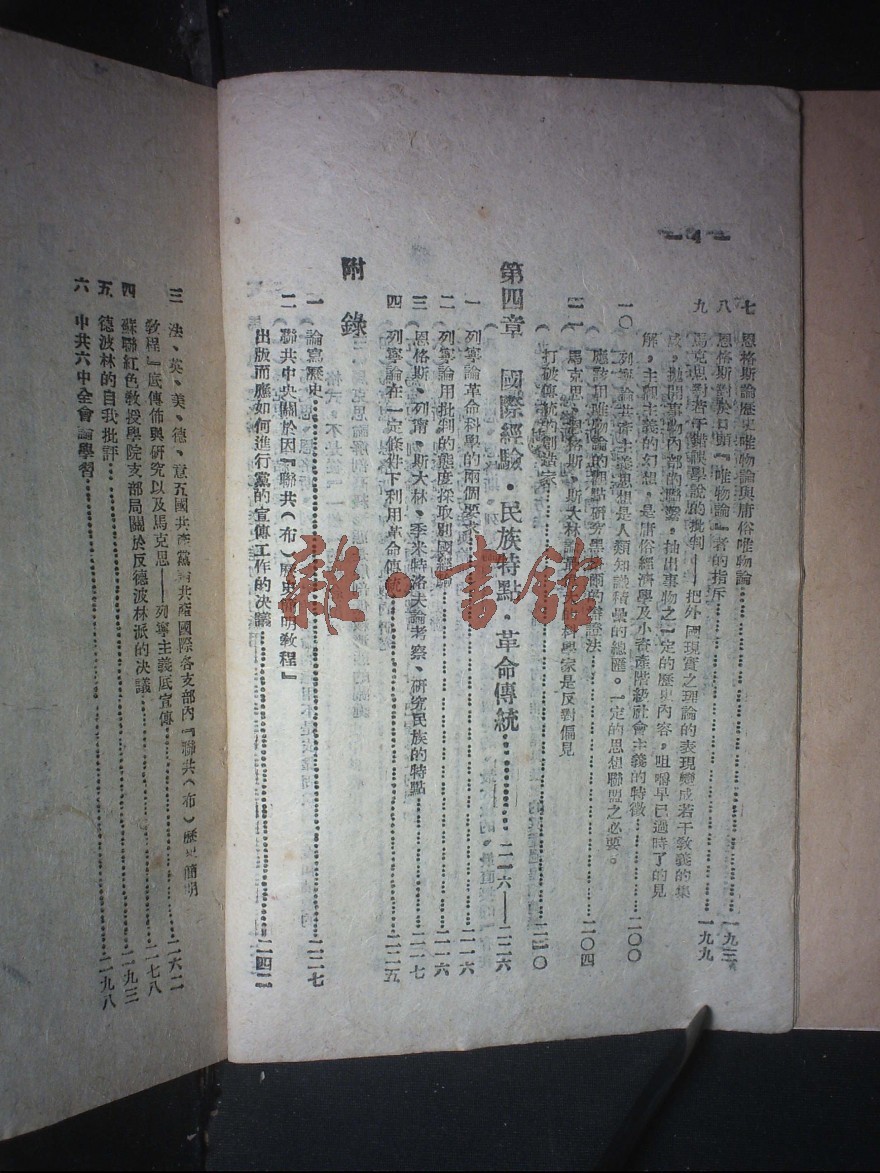 — 4 —
七 恩格斯論歷史唯物論與庸俗唯物論……一九三
八 恩格斯對於口頭『唯物論』者的指斥……一九九
九 馬克思對者干錯誤學說的批判——把外國現實之理論的表現變成若干教義的集
成，拋開事物內部的聯繫，抽出事物之一定的歷史內容，咀嚼早已過時了的見
解，主和主義的幻想，是庸俗經濟學及小資產階級社會主義的特徵……二〇〇
一〇 列寧論共產主義思想是人類知識積彙的總匯。一定的思想聯盟之必要。
應該用唯物論的觀點研究黑格爾的辯證法……二〇四
一一 馬克思、恩格斯、斯大林論科學家是反對偏見
打破傳統的創造家……二一〇
第四章 國際經驗·民族特點·革命傳統……二一六——二二六
一 列寧論革命科學的兩個要求……二一六
二 列寧論用批判的態度採取別國經驗……二一六
三 恩格斯、列寧、斯大林、季米特洛夫論考察、研究民族的特點……二一七
四 列寧論在一定條件下利用革命傳統……二二五
附 錄
一 論寫歷史……二二七
二 聯共中央關於因『聯共（布）歷史簡明教程』
出版而應如何進行黨的宣傳工作的決議……二四二
三 法、英、美、德、意五國共產黨論共產國際各支部內『聯共（布）歷史簡明
教程』底傳佈與研究以及馬克思——列寧主義底宣傳……二六二
四 蘇聯紅色教授學院支部局關於反德波林派的決議……二七八
五 德波林的自我批評……二九三
六 中共六中全會論學習……二九八
雜·書館